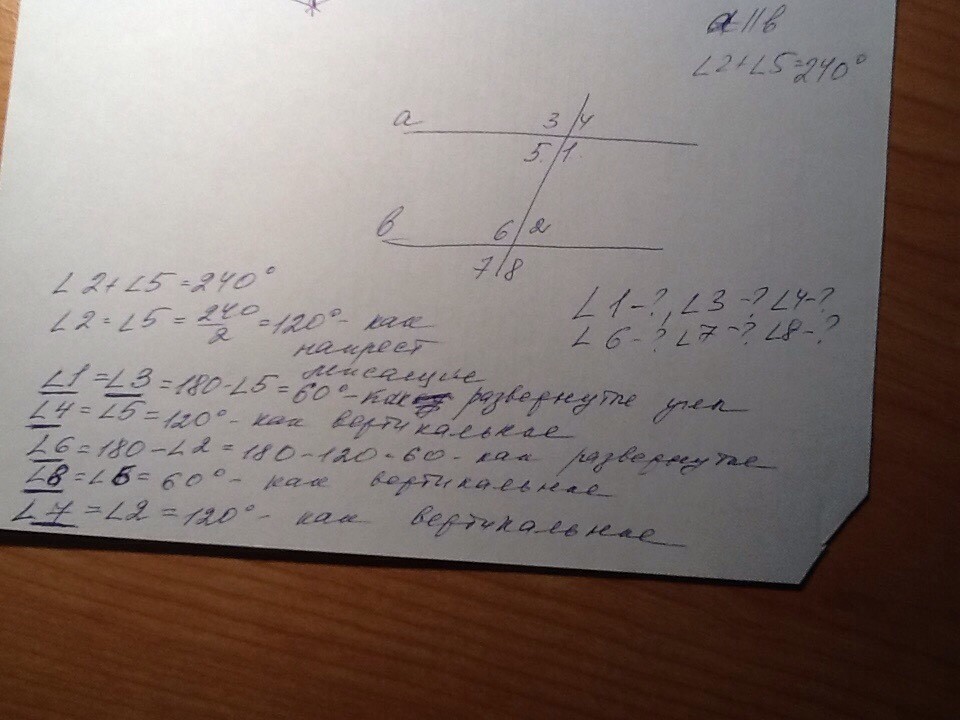 a || b
∠2+∠5=240°
a
3 4
5. 1.
в
6 2
7 8
∠2+∠5=240°
∠1-?, ∠3-? ∠4-?
∠6-? ∠7-? ∠8-?
∠2=∠5=240/2=120°- как
накрест
лежащие
∠1=∠3=180-∠5=60°- как развернутые угол
∠4=∠5=120°- как вертикальное
∠6=180-∠2=180-120=60- как развернутые
∠8=∠6=60°- как вертикальное
∠7=∠2=120°- как вертикальное